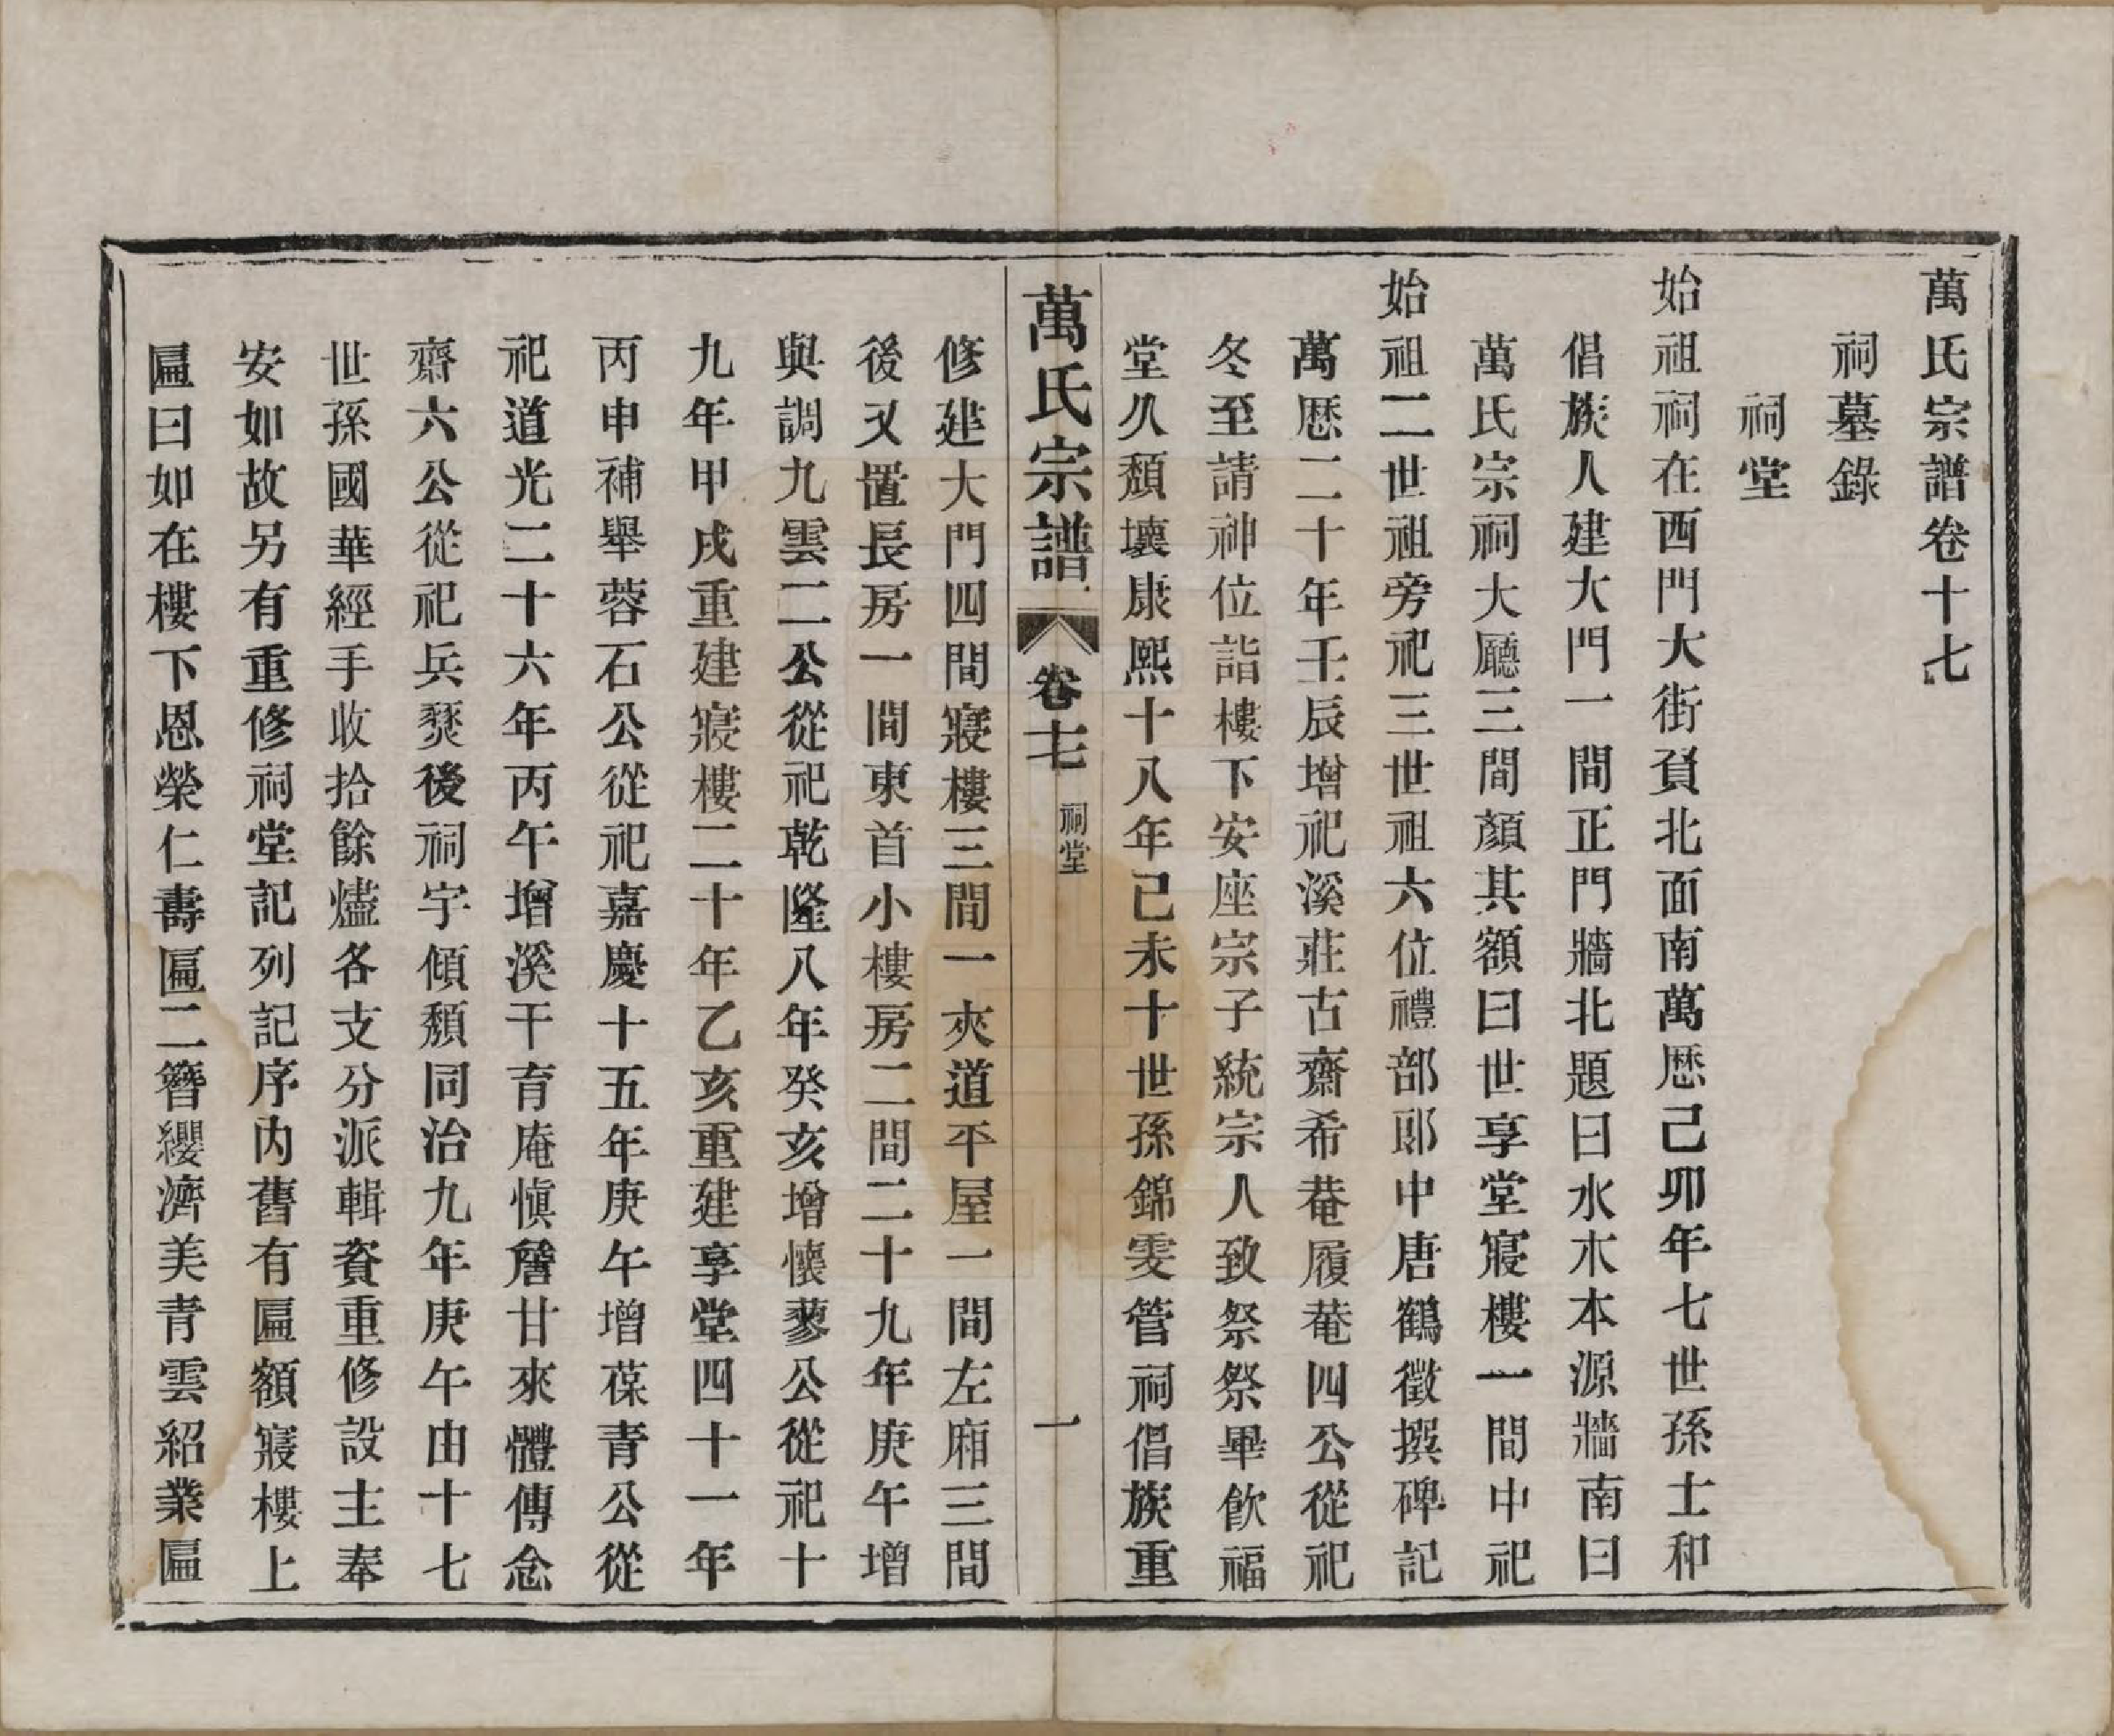 萬氏宗譜卷十七
祠墓錄
祠堂
始祖祠在西門大街負北面南萬厯己卯年七世孫士和
倡族人建大門一間正門牆北題曰水木本源牆南曰
萬氏宗祠大廳三間顏其額曰世享堂寢樓一間中祀
始祖二世祖旁祀三世祖六位禮部郎中唐鶴徵撰碑記
萬厯二十年壬辰增祀溪莊古齋希菴履菴四公從祀
冬至請神位詣樓下安座宗子統宗人致祭祭畢飲福
堂久頹壞康熙十八年己未十世孫錦雯管祠倡族重
萬氏宗譜 卷十七 祠堂 一
修建大門四間寢樓三間一夾道平屋一間左廂三間
後又置長房一間東首小樓房二間二十九年庚午增
與調九雲二公從祀乾隆八年癸亥增懷蓼公從祀十
九年甲戌重建寢樓二十年乙亥重建享堂四十一年
丙申補舉蓉石公從祀嘉慶十五年庚午增葆青公從
祀道光二十六年丙午增溪干育庵愼詹甘來體傳念
齋六公從祀兵燹後祠宇傾頹同治九年庚午由十七
世孫國華經手收拾餘燼各支分派輯資重修設主奉
安如故另有重修祠堂記列記序內舊有匾額寢樓上
匾曰如在樓下恩榮仁壽匾二簪纓濟美青雲紹業匾